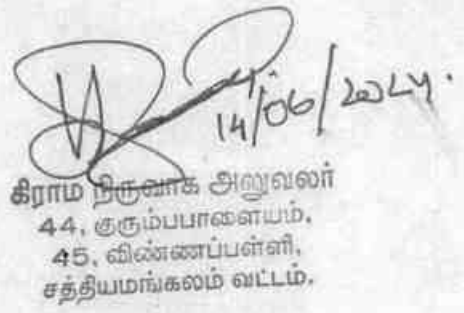 14/06/2024.
கிராம நிருவாக அலுவலர்
44, குரும்பபாளையம்,
45, விண்ணப்பள்ளி,
சத்தியமங்கலம் வட்டம்.